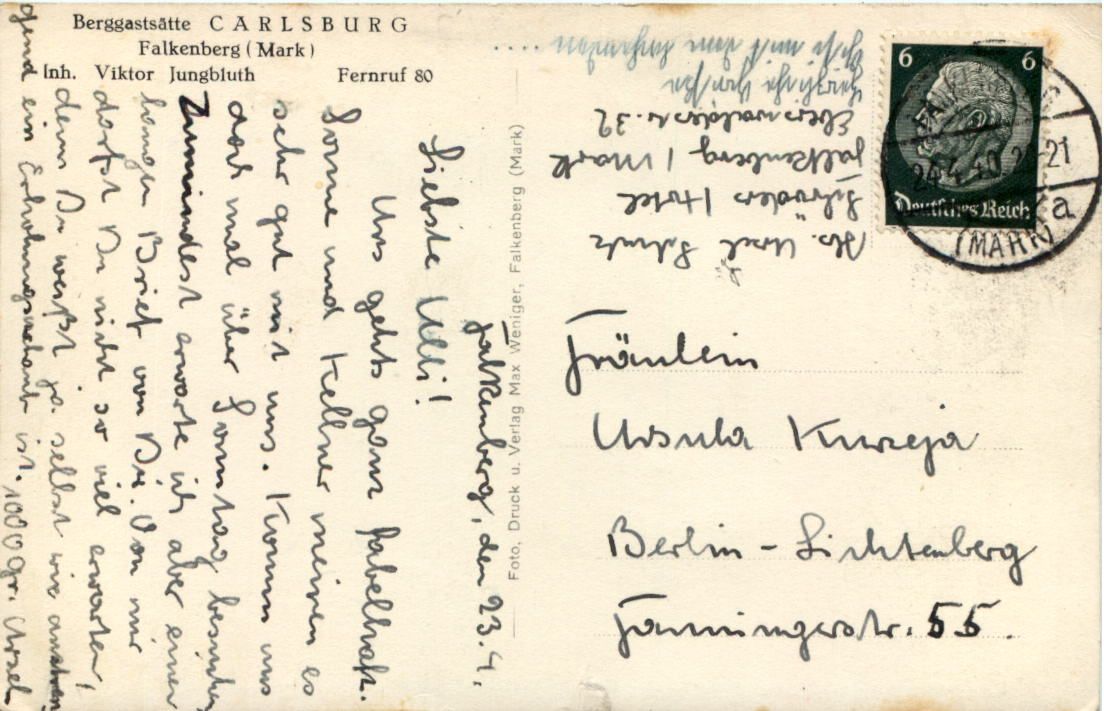 Berggaststätte CARLSBURG
Falkenberg (Mark)
Inh. Viktor Jungbluth Fernruf 80
Falkenberg, den 23.4.
Liebste Ulli!
Uns gehts ganz fabelhaft.
Sonne und Kellner meinen es
sehr gut mit uns. Komm uns
doch mal über Sonntag besuchen
Zumindest erwarte ich aber einen
langen Brief von Dir. Von mir
darfst Du nicht so viel erwarten,
denn Du weißt ja selbst wie anstren
gend ein Erholungsurlaub ist. 1000 Gr. Ursel
Foto, Druck u. Verlag Max Weniger, Falkenberg (Mark)
Abs. Ursel Schulz
Schröders Hotel
Falkenberg / Mark
Eberswalderstr. 32
Herzliche Grüße
6 6
Deutsches Reich
24.4.40 -21
a
(MARK)
Fräulein
Ursula Kurzeja
Berlin-Lichtenberg
Fanningerstr. 55.